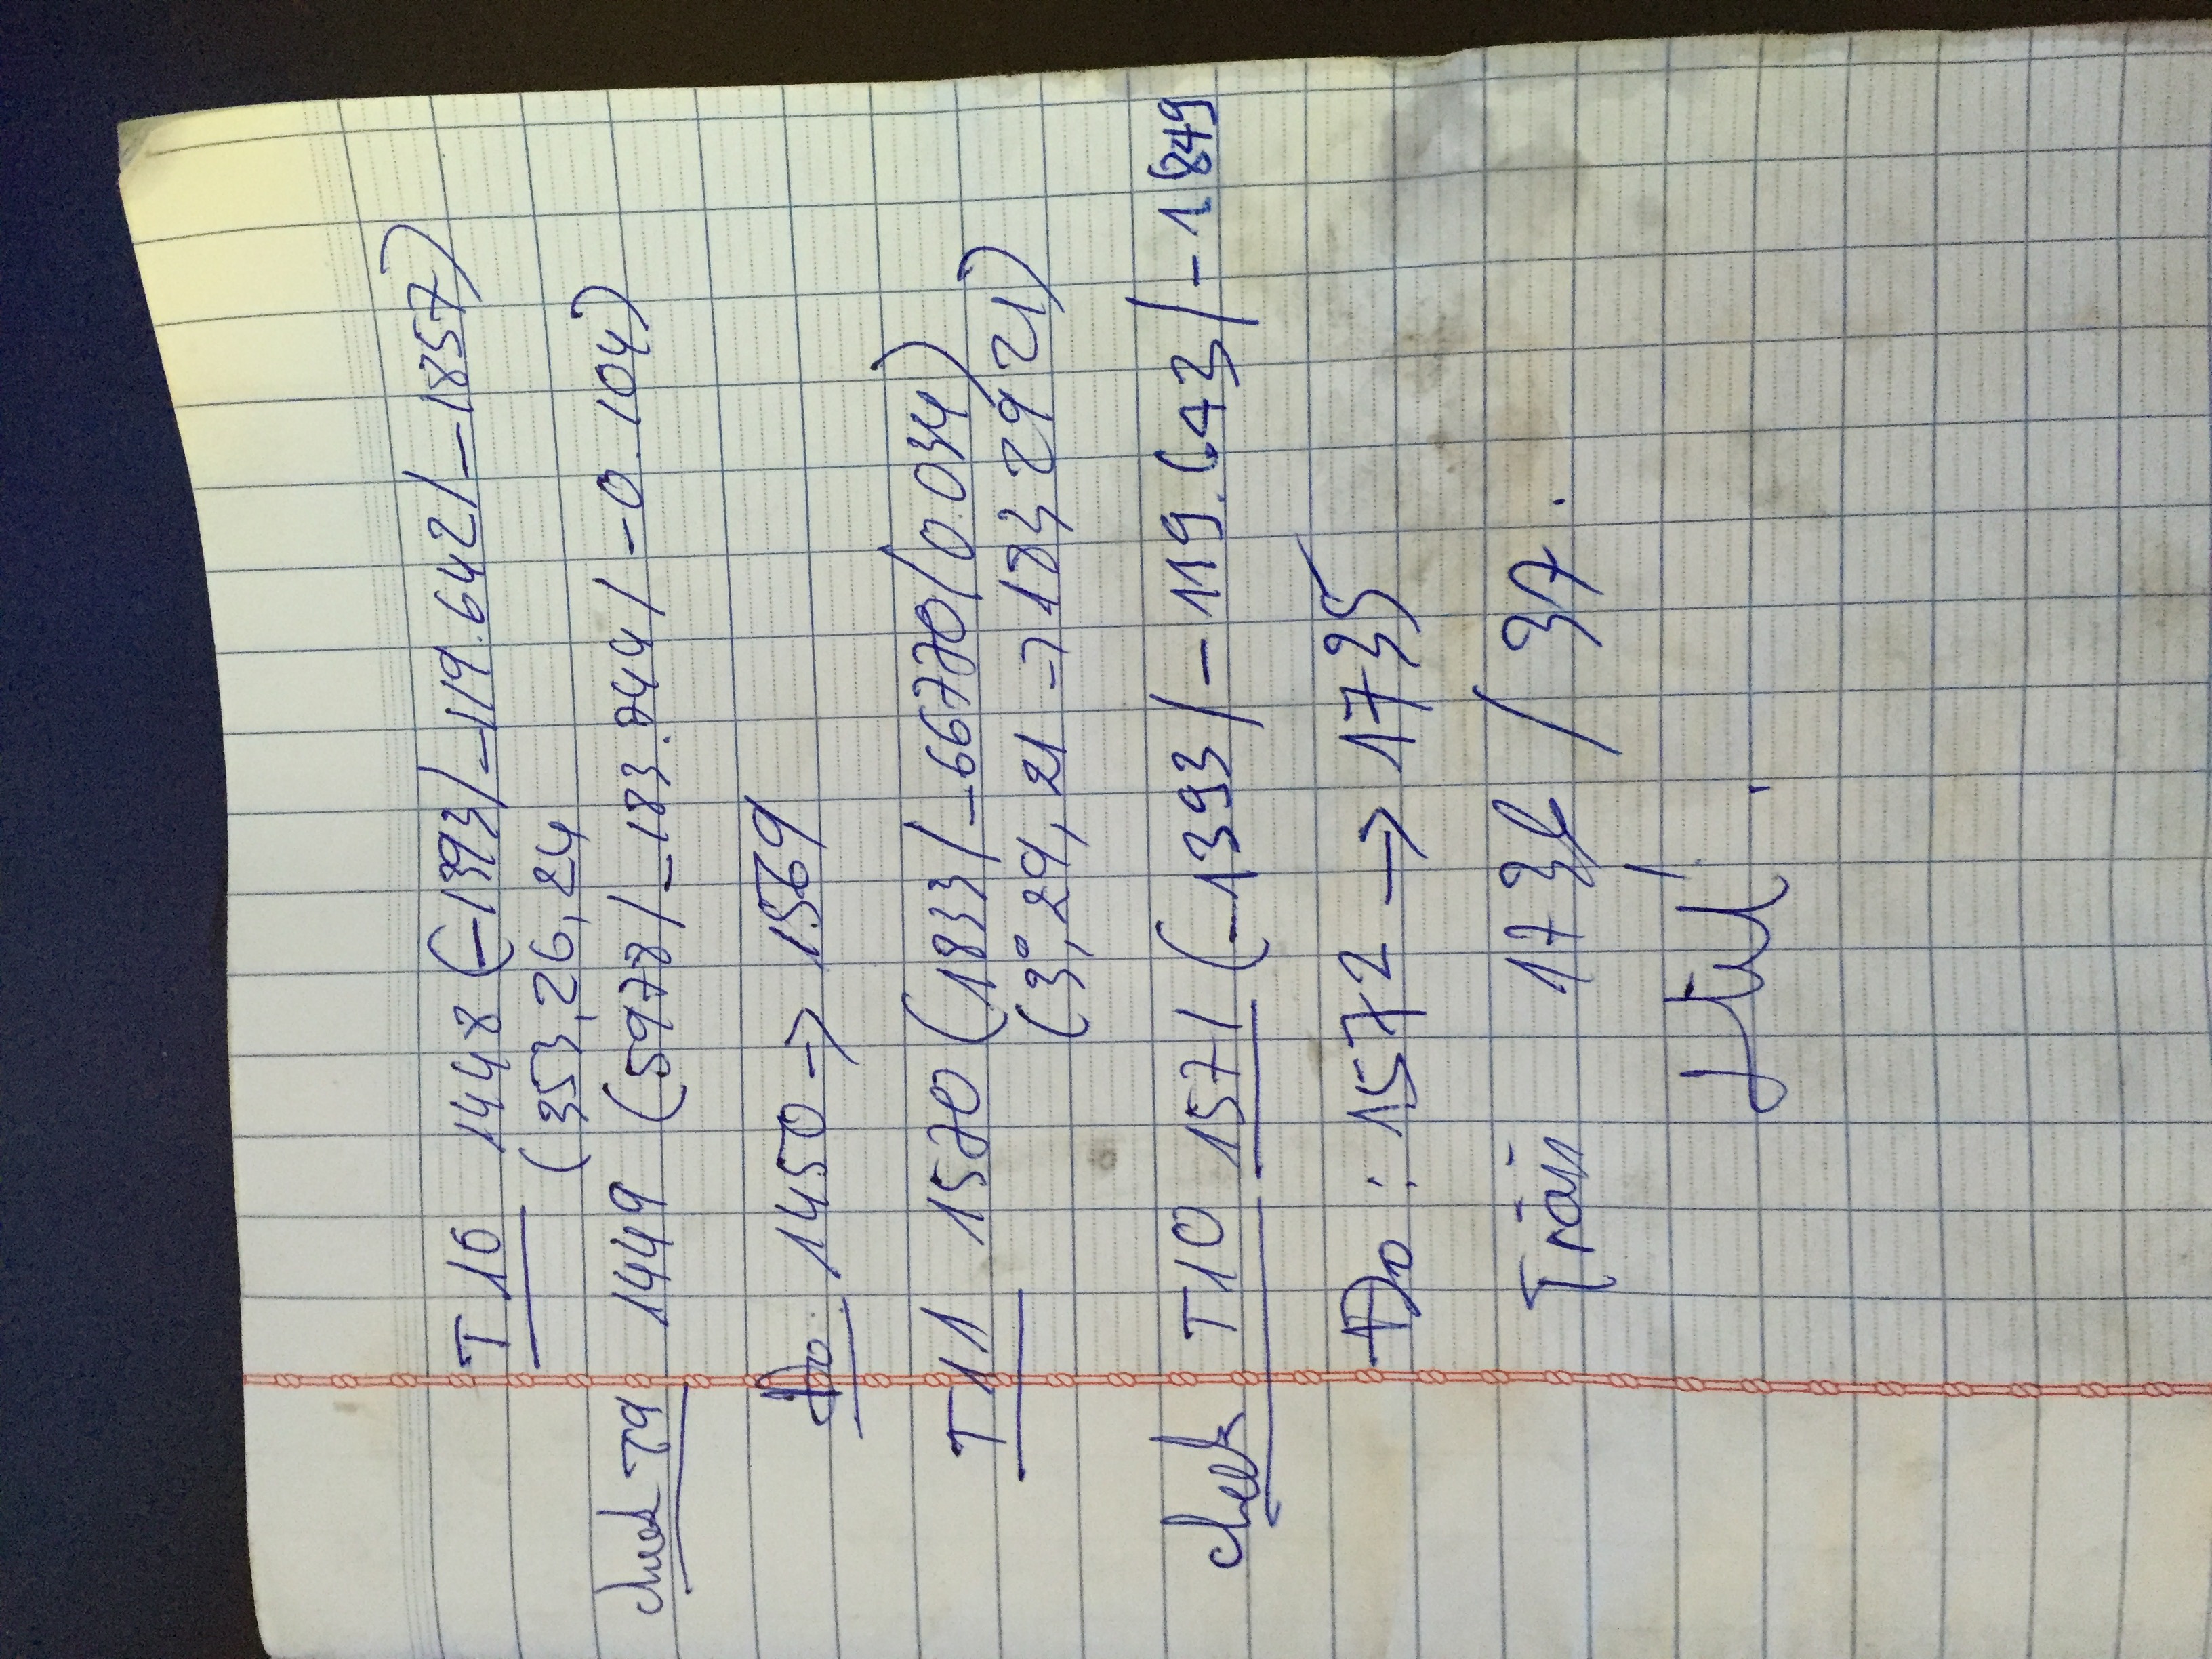 T10 1448 (-1393/-119.642/-1857)
(353,26,24
check T9 1449 (5978/-183.744/-0.104)
Đo: 1450 → 1569
T11 1570 (1833/-66770/0.034)
(3°,29,21 → 183 29 21)
check T10 1571 (-1393/-119.643/-1.849
Đo : 1572 → 1735
1736 / 37.